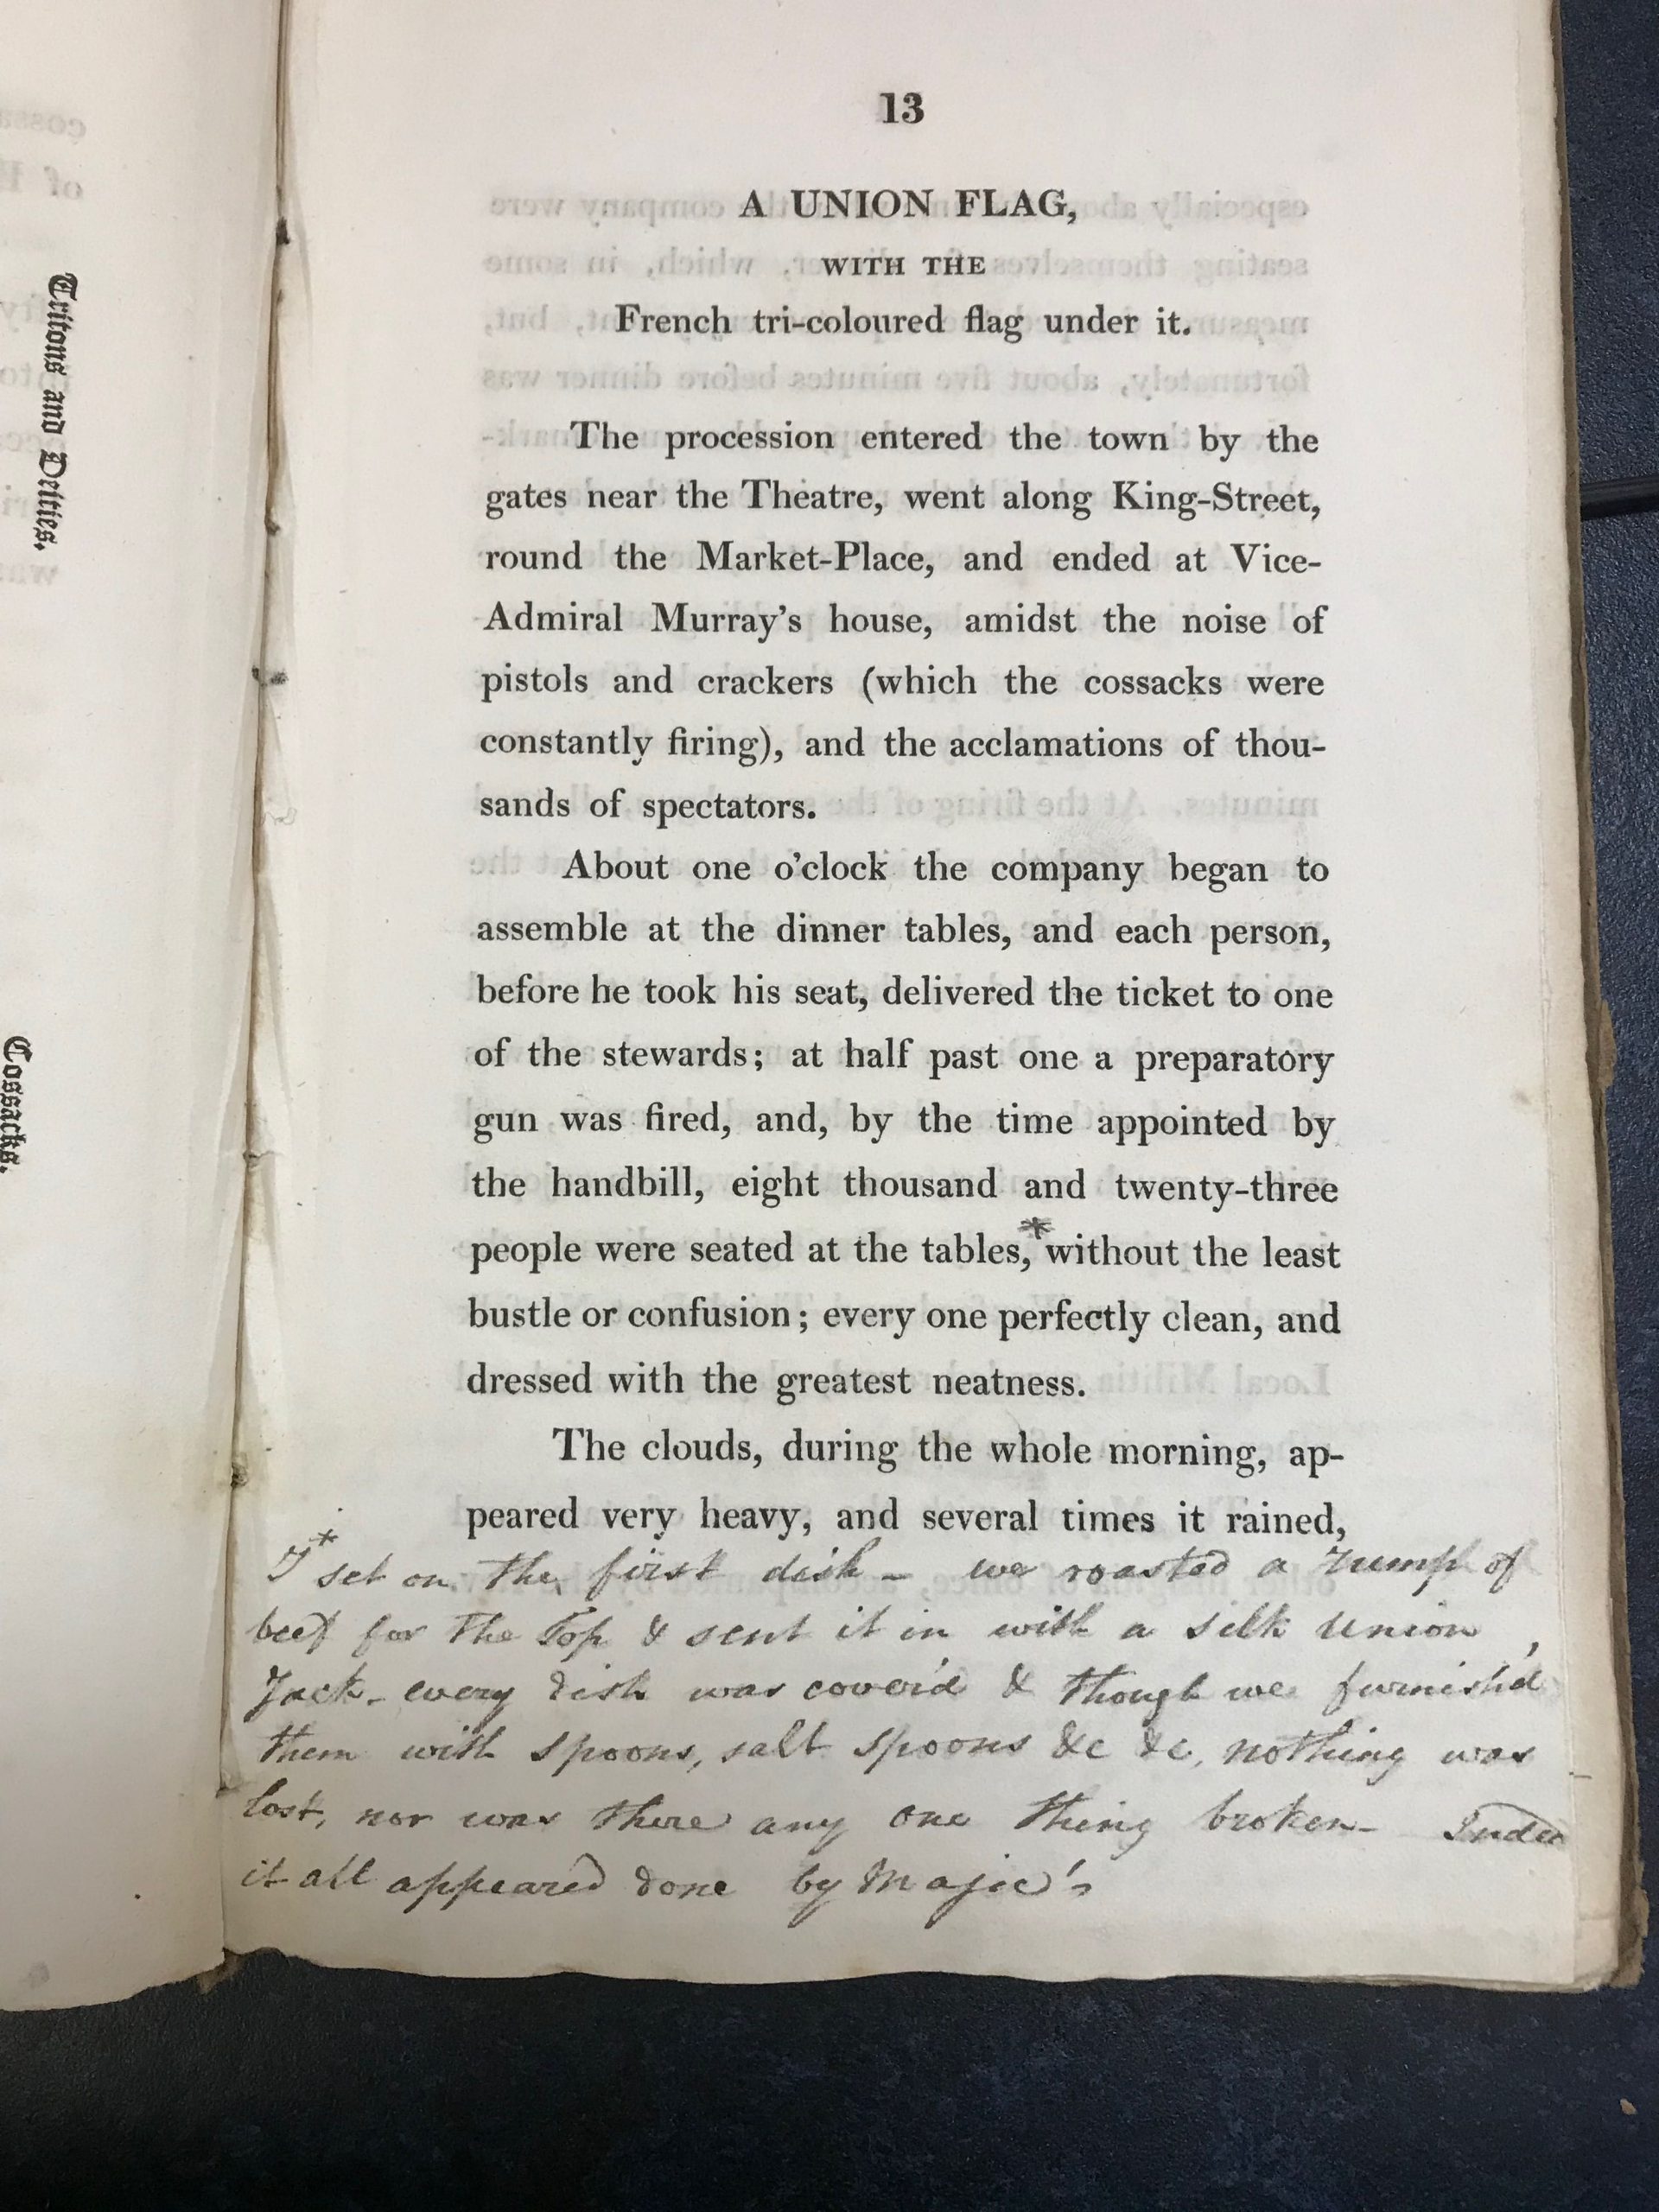 13
A UNION FLAG,
WITH THE
French tri-coloured flag under it.
The procession entered the town by the
gates near the Theatre, went along King-Street,
round the Market-Place, and ended at Vice-
Admiral Murray's house, amidst the noise of
pistols and crackers (which the cossacks were
constantly firing), and the acclamations of thou-
sands of spectators.
About one o'clock the company began to
assemble at the dinner tables, and each person,
before he took his seat, delivered the ticket to one
of the stewards; at half past one a preparatory
gun was fired, and, by the time appointed by
the handbill, eight thousand and twenty-three
people were seated at the tables,* without the least
bustle or confusion; every one perfectly clean, and
dressed with the greatest neatness.
The clouds, during the whole morning, ap-
peared very heavy, and several times it rained,
* I set on the first dish - we roasted a rump of
beef for the Top & sent it in with a silk Union
Jack - every dish was cover'd & though we furnish'd
them with spoons, salt spoons &c &c, nothing was
lost, nor was there any one thing broken - Indee
it all appeared done by Majic's
Tritons and Deities.
Cossacks.